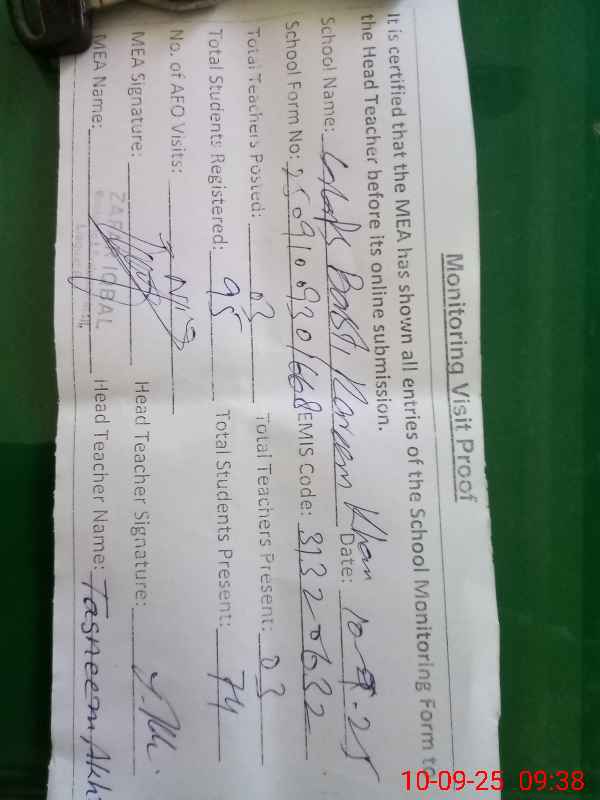 Monitoring Visit Proof
It is certified that the MEA has shown all entries of the School Monitoring Form to
the Head Teacher before its online submission.
School Name: Basti Kareem Khan Date: 10-9-25
School Form No: EMIS Code: 31320632
Total Teachers Posted: 03 Total Teachers Present: 03
Total Students Registered: 95 Total Students Present: 74
No. of AFO Visits: Nil
MEA Signature: Head Teacher Signature:
MEA Name: ZAFAR IQBAL Head Teacher Name: Tasneem Akh
10-09-25 09:38